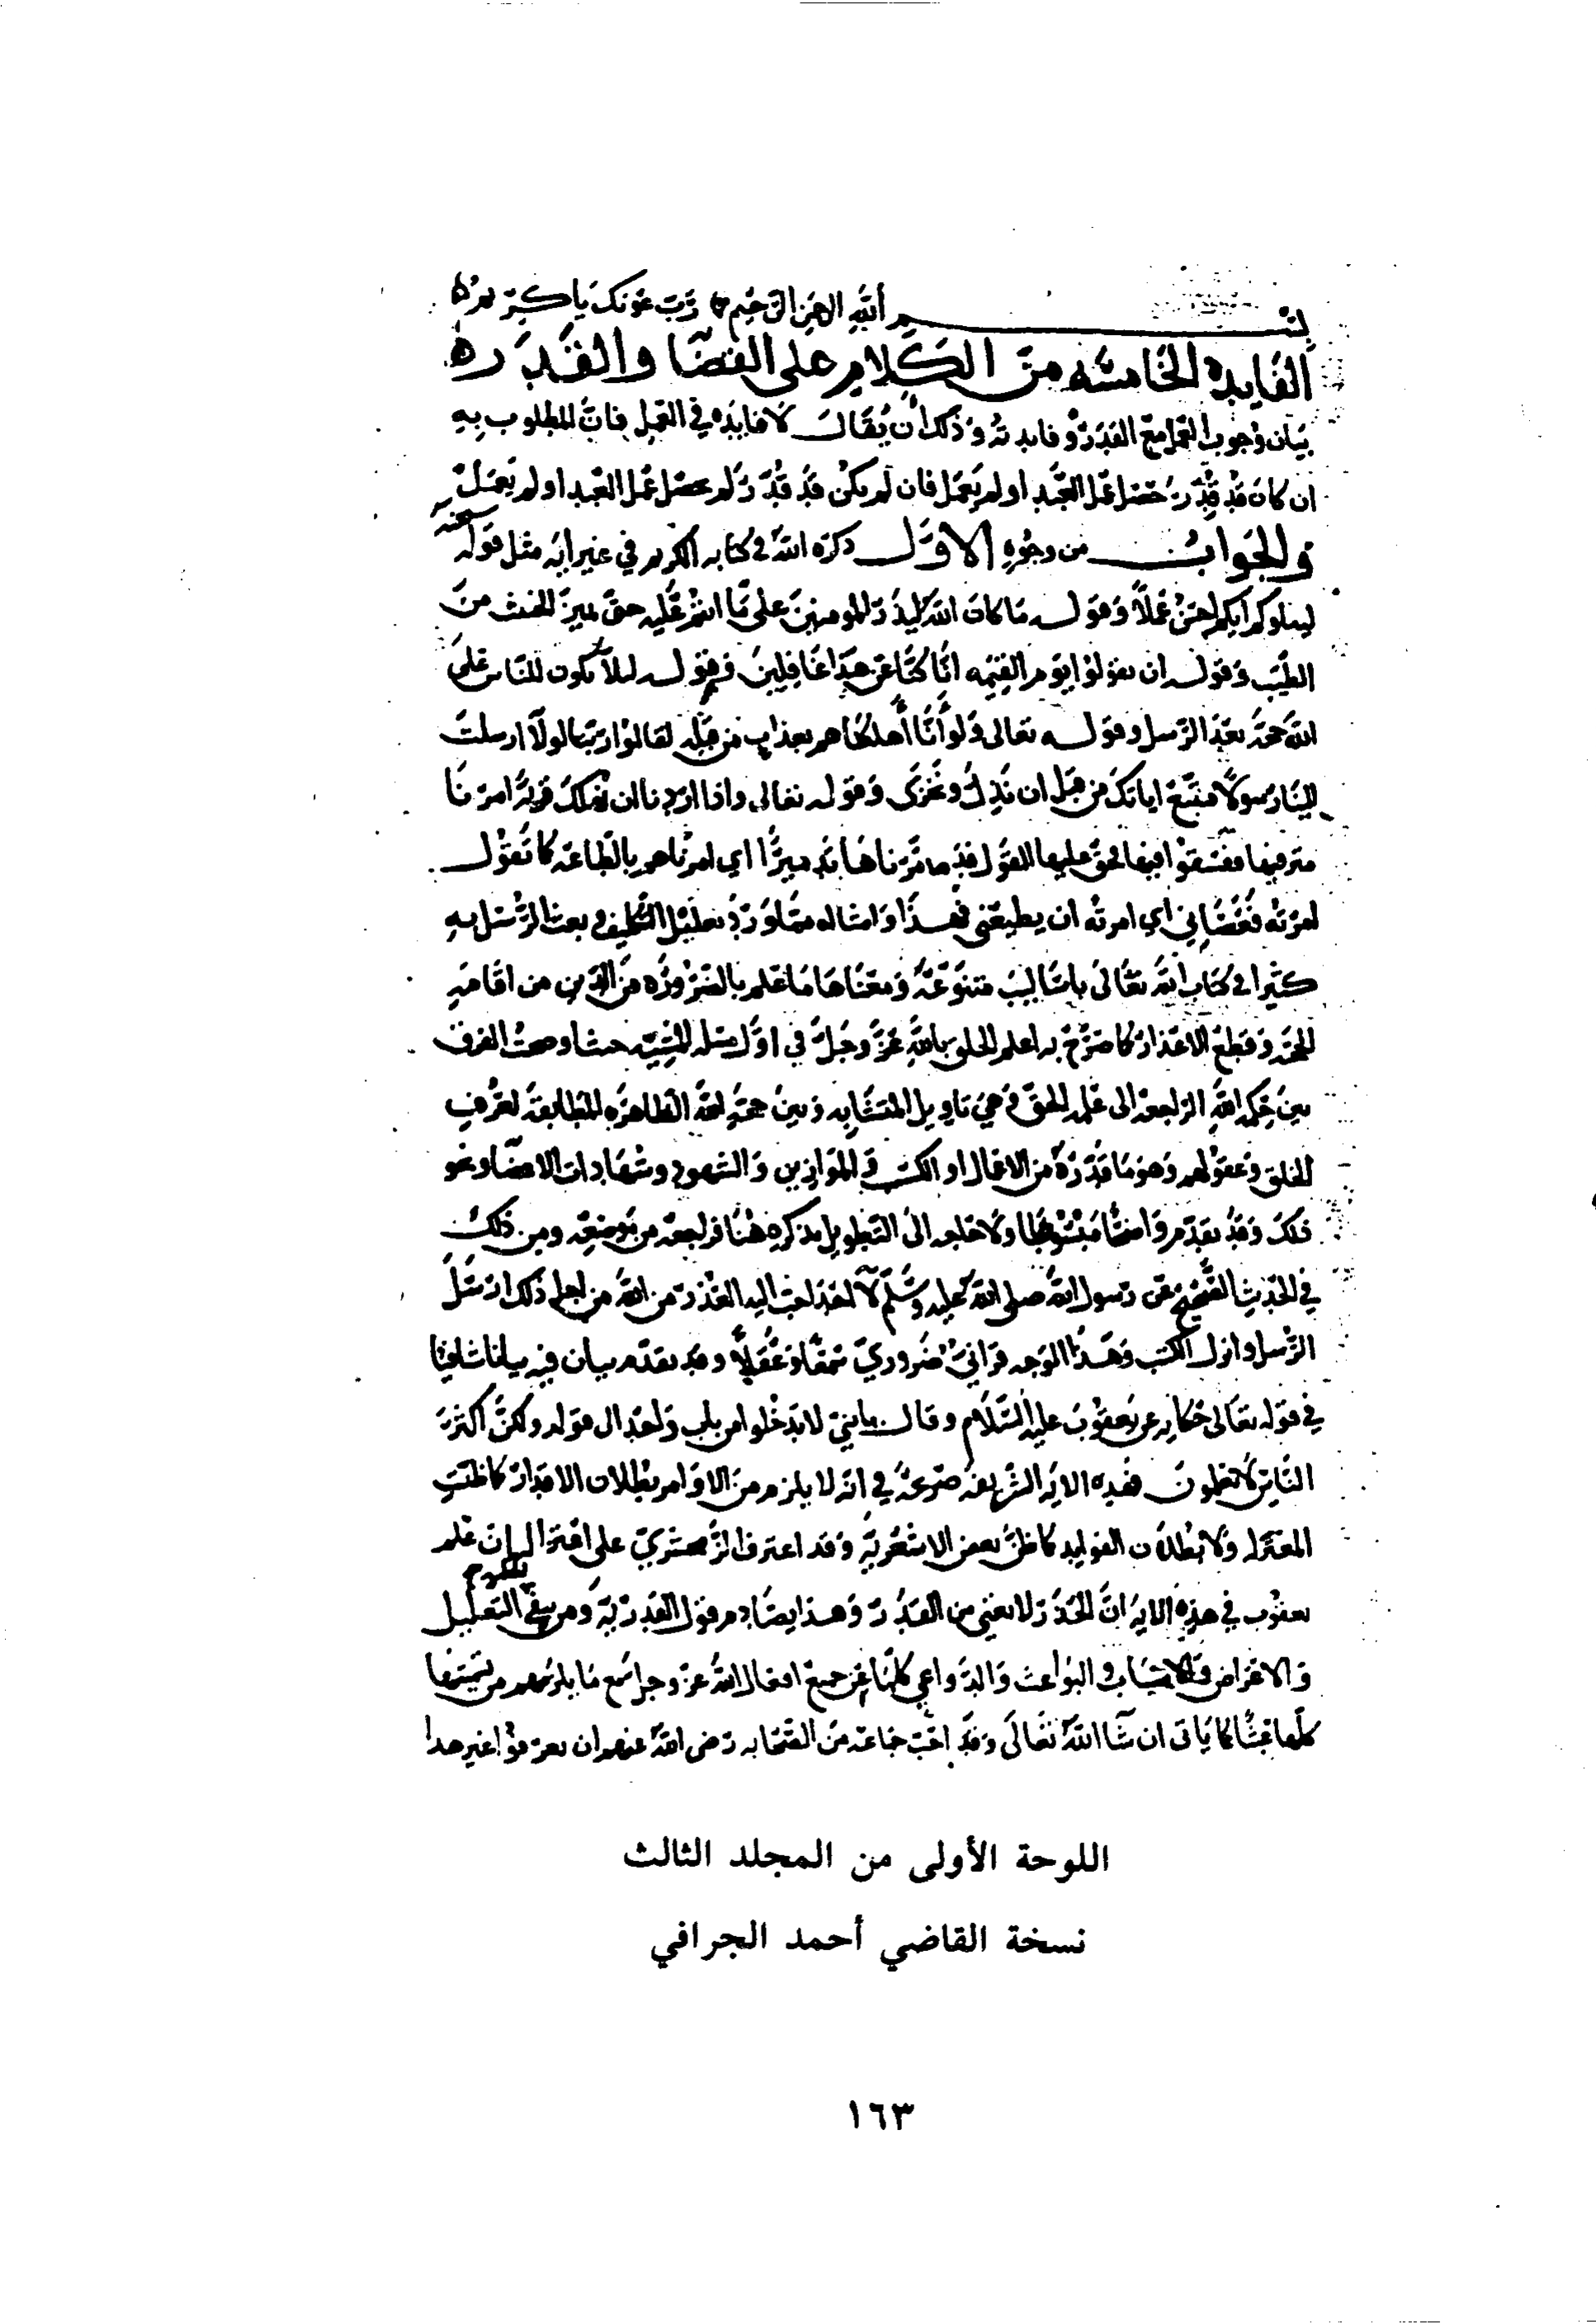 بسم الله الرحمن الرحيم رب عونك يا كريم
الفايده الخامسه من الكلام على القضا والقدر
بيان وجوب العمل مع القدر وفايدته وذلك أن يقال لا فايده في العمل فان المطلوب به
ان كان قد قدر حصل عمل العبد او لم يعمل فان لم يكن قد قدر لم يحصل عمل العبد او لم يعمل
والجواب من وجوه الاول ذكره الله في كتابه الكريم في غير ايه مثل قوله سبحنه
ليبلوكم ايكم احسن عملا وقوله ما كان الله ليذر المومنين على ما انتم عليه حتى يميز الخبيث من
الطيب وقوله ان تقولوا يوم القيمه انا كنا عن هذا غافلين وقوله ليلا يكون للناس على
الله حجة بعد الرسل وقوله تعالى ولو أنا أهلكناهم بعذاب من قبله لقالوا ربنا لولا ارسلت
الينا رسولا فنتبع اياتك من قبل ان نذل ونخزى وقوله تعالى واذا اردنا ان نهلك قرية امرنا
مترفيها ففسقوا فيها فحق عليها القول فدمرناها تدميرا اي امرناهم بالطاعة كما تقول
امرته فعصاني اي امرته ان يطيعني فهذا وامثاله مما ورد تعليل التكليف وبعث الرسل به
كثيرا في كتاب الله تعالى باساليب متنوعة ومعناها ما علم بالضروره من الدين من اقامه
الحجه وقطع الاعذار كما صرح به اعلم الخلق بالله عز وجل في اول مسله المشييه حيث اوضحت الفرق
بين حكمه الله الراجعه الى علمه الحق وهي تاويل المتشابه وبين حجة الله الظاهره المطابقة لعرف
الخلق وعقولهم وهو ما قدره من الاعمال او الكتب والموازين والشهود وشهادات الاعضا ونحو
ذلك وقد تقدم واضحا مبسوطا ولا حاجه الى التطويل بذكره هنا فراجعه من موضعه ومن ذلك
في الحديث الصحيح عن رسول الله صلى الله عليه وسلم لا احد احب اليه العذر من الله من اجل ذلك ارسل
الرسل وانزل الكتب وهذا الوجه قراني ضروري سمعا وعقلا وقد تقدم بيان فيه بيانا شافيا
في قوله تعالى حكايه عن يعقوب عليه السلام وقال يا بني لا تدخلوا من باب واحد الى قوله ولكن اكثر
الناس لا يعلمون فهذه الايه الشريفة صريحة في انه لا يلزم من الاوامر بطلان الاقدار كما ظنت
المعتزله ولا بطلان الفوايد كما ظن بعض الاشعرية وقد اعترف الزمخشري على اعتزاليه ان علم
يعقوب في هذه الايه ان الحذر لا يغني من القدر وهذا يصادم قول القدرية ومن ينفي التعليل
والاغراض والاسباب والبواعث والدواعي كلها عن جميع افعال الله عز وجل مع ما يلزمهم من تسميتها
كلها عبثا كما ياتي ان شا الله تعالى وقد احب جماعة من الصحابه رضي الله عنهم ان يعرفوا غير هدا
اللوحة الأولى من المجلد الثالث
نسخة القاضي أحمد الجرافي
١٦٣